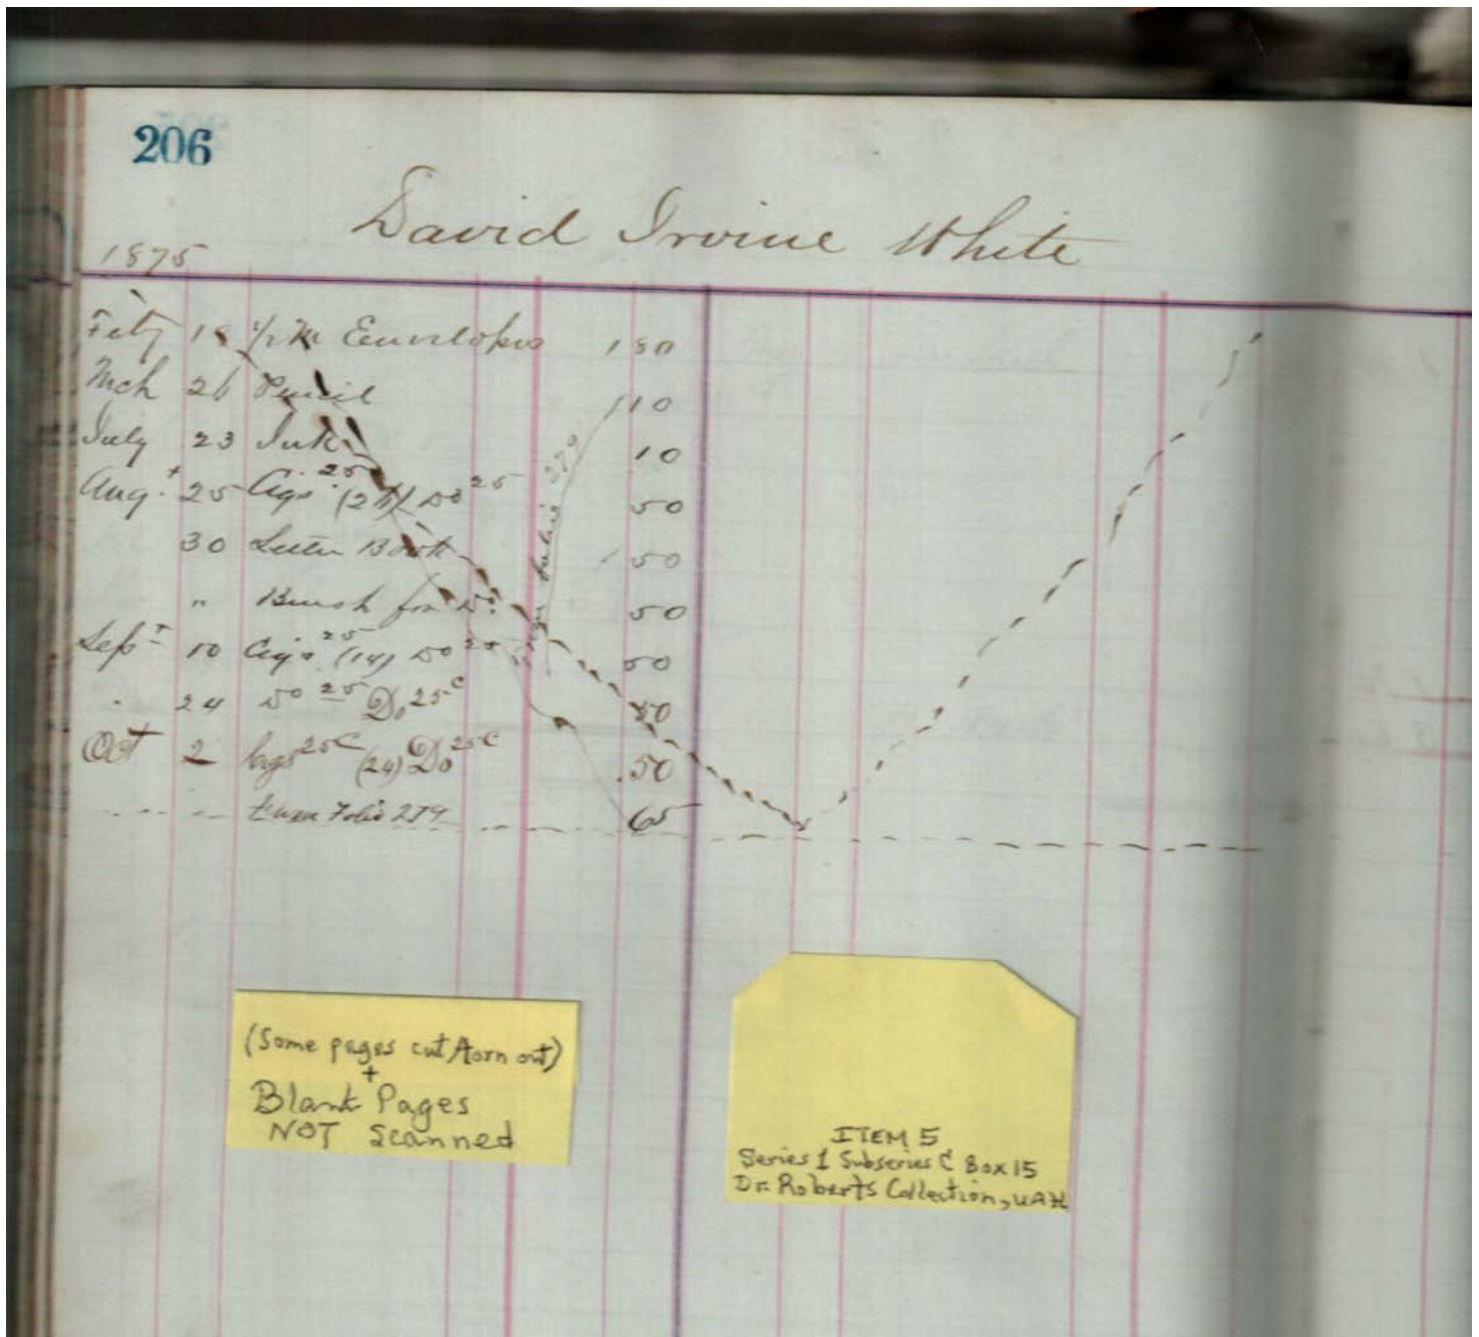 206
David Irvine White
1875
Feby 18 1/2 M Envelopes 1 50
Mch 26 Pencil 10
July 23 Ink 10
Aug.t 25 Cigs. 25 Do 25 50
30 Letter Book 1 50
" Brush for Do. 50
Sept 10 Cigs 25 (14) Do 25 50
24 Do 25 Do 25c 50
Oct 2 25c (24) Do 25c .50
Folio 279 65
Folio 279
(Some pages cut/torn out)
+
Blank Pages
NOT Scanned
ITEM 5
Series 1 Subseries C Box 15
Dr. Roberts Collection, UAH